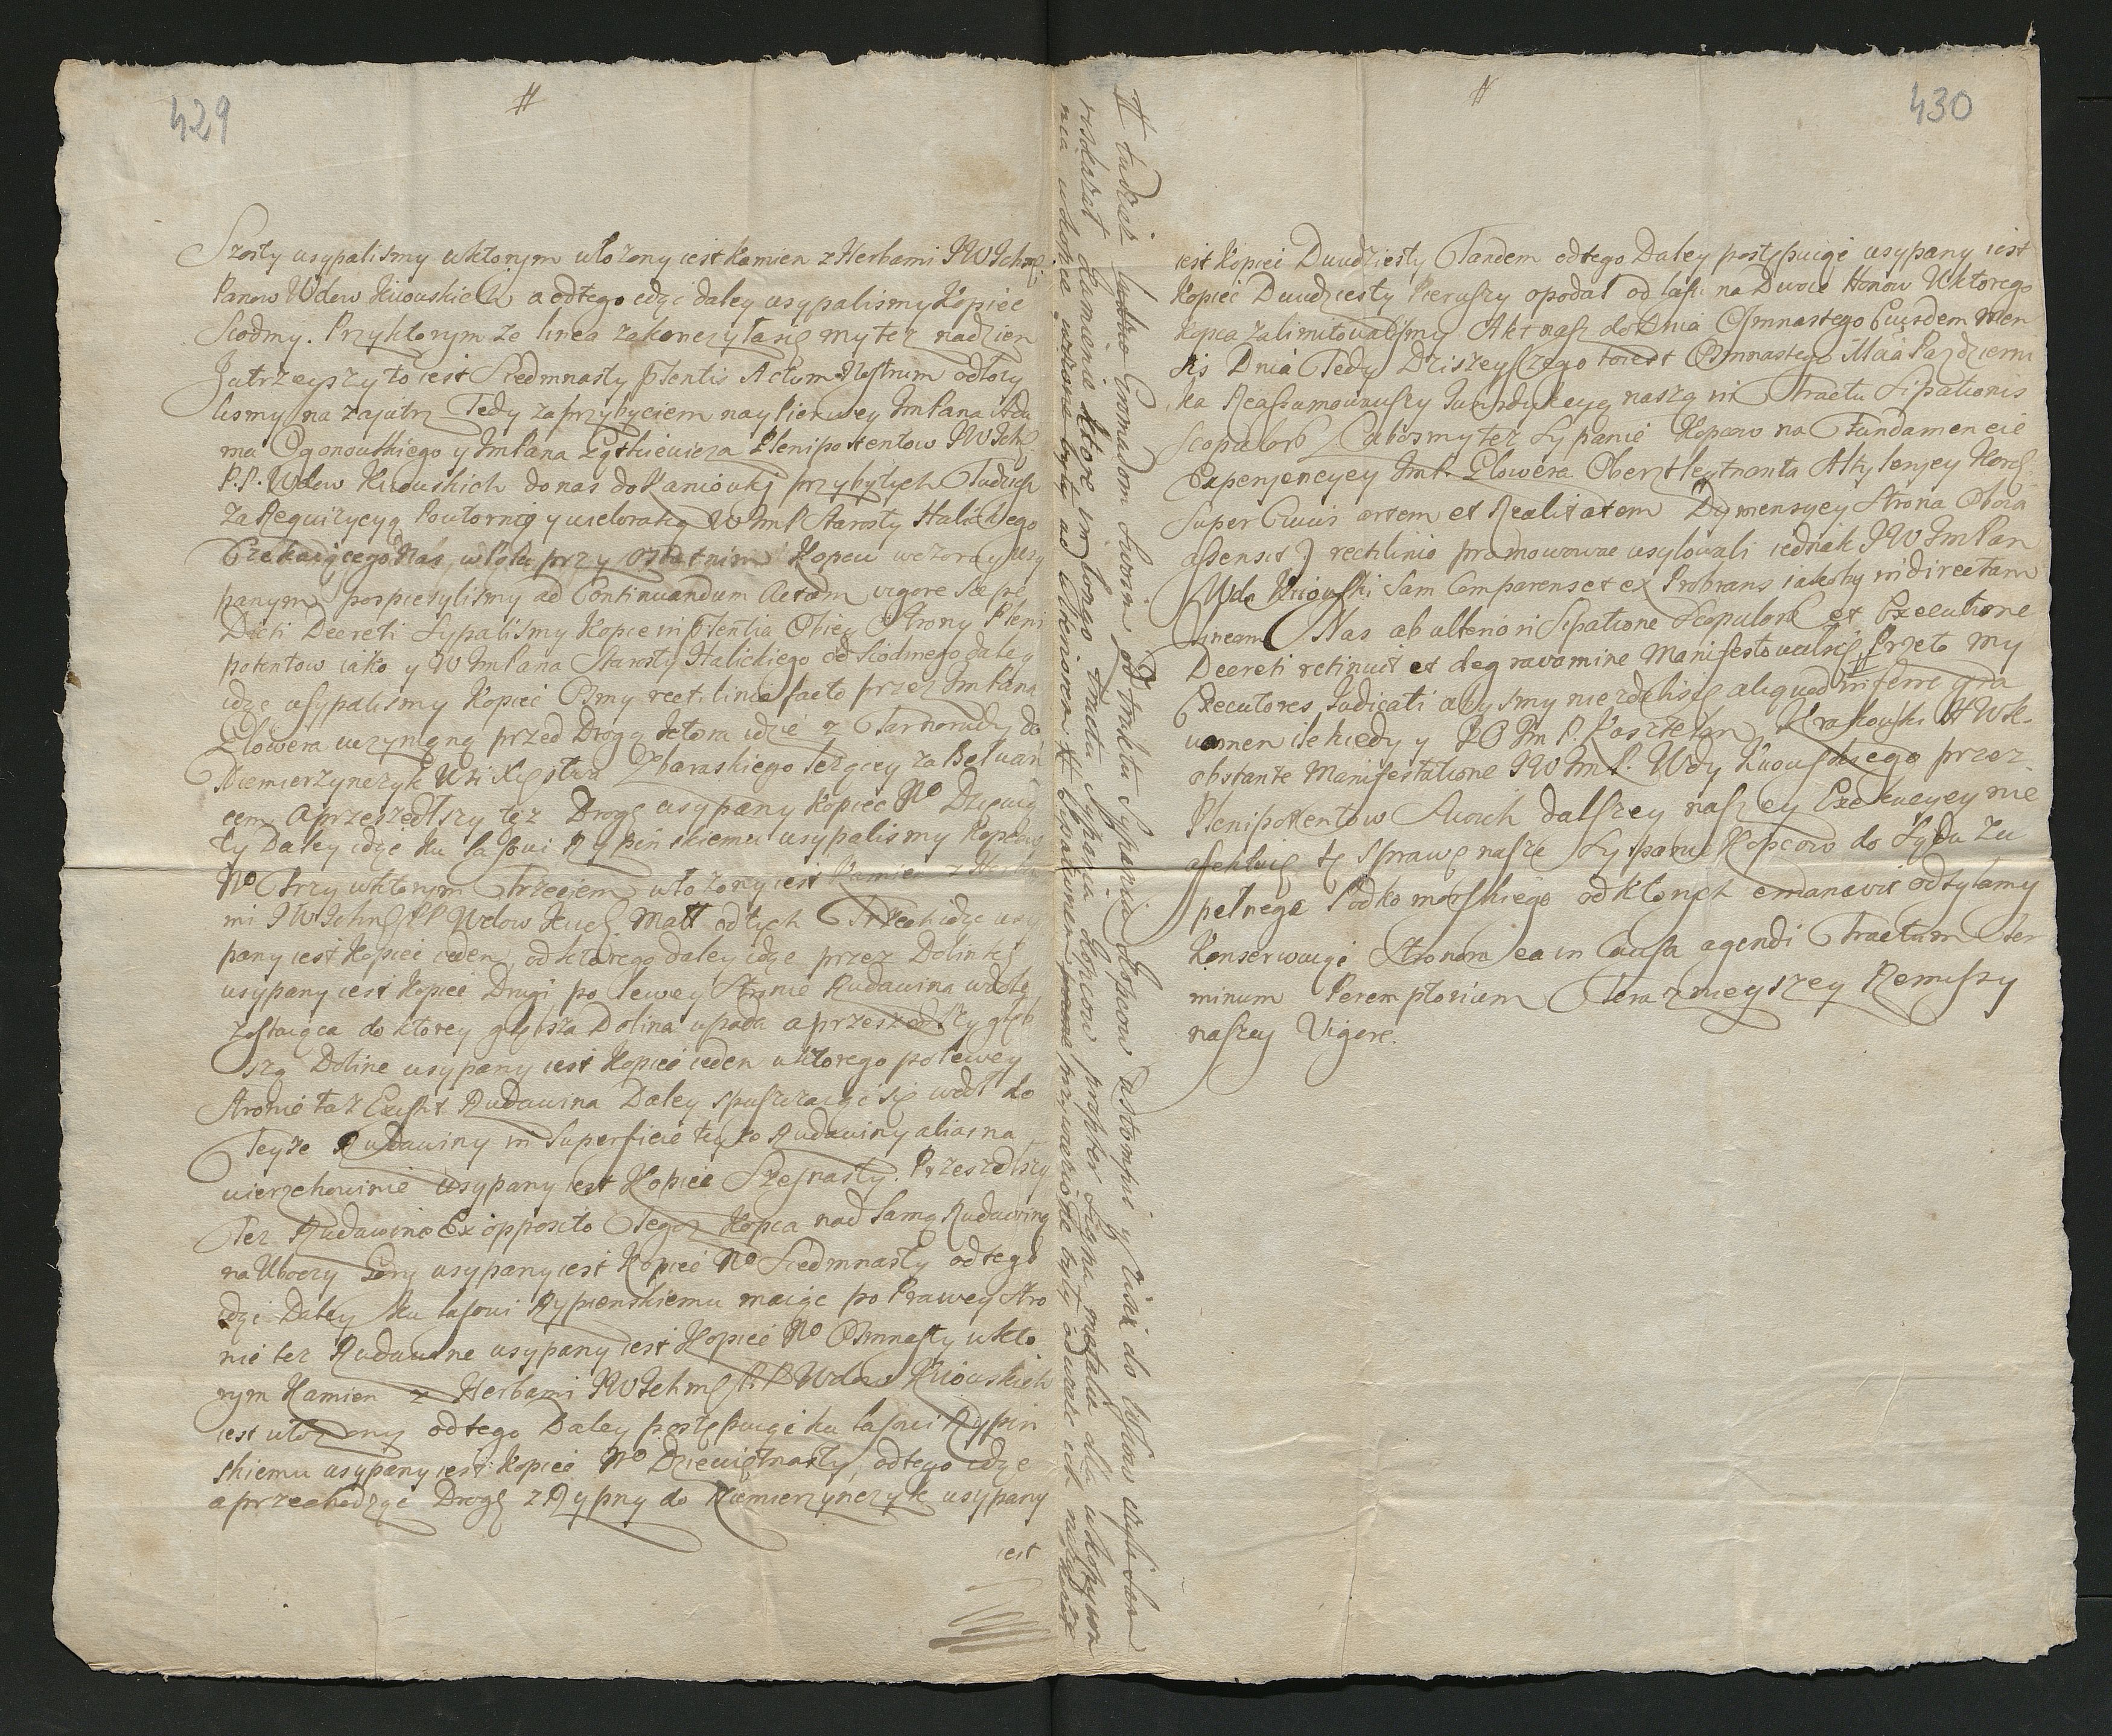 429
#
Szosty usypalismy wktorym włożony iest kamien z Herbami JWJchm
Panow Wdow Kiiowskich a odtego idąc daley usypalismy Kopiec
Siodmy. Przyktorym ze linea zakonczyła się my też nadzien
Jutrzeyszy to iest Siedmnasty ptentis Actum Nostrum odłozy
lismy na zajutrz Tedy zaprzybyciem naypierwey ImPana Ada
ma Ogonowskiego y ImPana Plenipotentow JWJch
P.P. Wdow Kiiowskich donas doKaniowki przybyłych Tudziesz
za Requizycyą Powtorną y wieloraką WImP Starosty Halickiego
Czekaiącego Nas wPolu przy ostatnim Kopcu wczoray usy
panym pospieszylismy ad Continuandum Actum vigore Sæpe
Dicti Decreti Sypalismy Kopce in ptentia Obiey Strony Pleni
potentow iako y WImPana Starosty Halickiego od Siodmego daley
idąc usypalismy Kopiec Osmy rectilinio facto przez ImPana
Elowera uczynioną przed Drogą ktora idzie z Tarnorudy do
Niemierzynczyk Wsi Xięstwa Zbaraskiego leżącey za Bałwań
cem aprzeszedłszy tęż Drogę usypany Kopiec No Dziewią
ty Daley idąc ku lasowi Rypińskiemu usypalismy Kopcow
No Trzy wktorym Trzecim włożony iest Kamien z Herba
mi JWJchm PP Wdow Kiiow. Matt odtych Trzech idąc usy
pany iest Kopiec ieden od ktorego daley idąc przez Dolinkę
usypany iest Kopiec Drugi po lewey stronie Rudawina
zostaiąca do ktorey głębsza Dolina upada aprzeszedłszy głęb
szą Dolinę usypany iest Kopiec ieden uktorego polewey
stronie taż Exist Rudawina Daley spuszczaiąc się wdoł ko
Teyże Rudawiny in Superficie teyże Rudawiny alias na
wierzchowinie usypany iest Kopiec Szesnasty. Przeszedłszy
Też Rudawinę Ex opposito Tegoż Kopca nad samą Rudawiną
na Uboczy Gory usypany iest Kopiec No Siedmnasty odtego
idąc Daley ku lasowi Rypienskiemu maiąc po Prawey stro
nie też Rudawinę usypany iest Kopiec No Osmnasty wkto
rym Kamien z Herbami JWJchm PP Wdow Kiiowskich
iest włożony odtego Daley postępuiąc ku lasowi Rypiń
skiemu usypany iest Kopiec No Dziewiętnasty, odtego idąc
aprzechodząc Drogę z Rypny do Niemierzynczyk usypany
iest
# tudziesz ludziom Gromadom Swoim od traktu Sypania Kopcow ustompić y iśdź do Wsiow
rozkazał kamienie ktore in longo tractu Sypania Kopcow propter Signa metalia dla wkopywa
nia wkopce wożone były ad ulteriorem # przywiezione były odwieść ich nazad kazał
#
430
iest Kopiec Dwudziesty Tandem odtego Daley postępuiąc usypany iest
Kopiec Dwudziesty Pierwszy opodal od lasu na Dwoie Honow Uktorego
kopca zalimitowalismy Akt nasz doDnia Osmnastego Eiusdem Men
sis Dnia Tedy Dzisieyszego toiest Osmnastego Mca Pazdzierni
ka Reassumowawszy Jurysdykcyą naszą in Tractu Sipationis
Scopulorum Lubosmy też Sypanie Kopcow na Fundamencie
Experyencyey ImP. Elowera Obersztleytnanta Artyleryey Kor
Super Cuius artem et Realitatem Dymensyey Strona Oboia
assensit) rectilinio promowowac usyłowali iednak JWImPan
Wda Kiiowski Sam Comparens et ex Probrans iakoby indirectam
Lineam Nas ab ulteriori Sipatione Scopulorum et Executione
Decreti retinuit et degravamine Manifestował się # Przeto my
Executores Judicati abysmy niezdalisię aliquod inferre grava
wamen iżekiedy y JO ImP. Kasztelan Krakowski HWK.
obstante Manifestatione JWImP. Wdy Kiiowskiego przez
Plenipotentow Swoich dalszey naszey Exekucyey nie
affektuię tę Sprawę naszę Sypania Kopcow do Sądu Zu
pełnego Podkomorskiego odktorych emanavit odsyłamy
Konserwuiąc Stronom ea in Causa agendi Tractum Ter
minum Peremptorium Teraznieyszey Remissy
naszey Vigore.